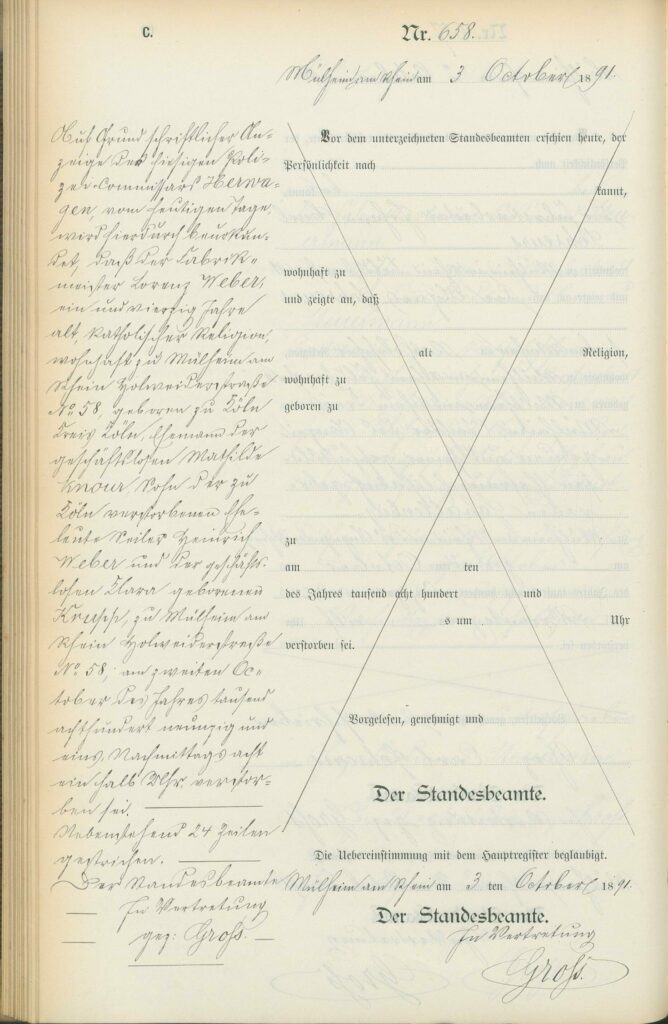 C.
Nr. 658.
Mülheim am Rhein am 3 October 1891.
Auf Grund schriftlicher An-
zeige des hiesigen Poli-
zei-Commissars Herwe-
gen, vom heutigen Tage,
wird hierdurch beurkun-
det, daß der Fabrik-
meister Lorenz Weber,
ein und vierzig Jahre
alt, katholischer Religion,
wohnhaft zu Mülheim am
Rhein Holweiderstraße
No 58, geboren zu Cöln
Kreis Cöln, Ehemann der
geschäftslosen Mathilde
Sohn der zu
Cöln verstorbenen Ehe-
leute Seiler Heinrich
Weber und der geschäfts-
losen Clara geborenen
zu Mülheim am
Rhein Holweiderstraße
No 58, am zweiten Oc-
tober des Jahres tausend
achthundert neunzig und
eins, Nachmittags acht
ein halb Uhr verstor-
ben sei.
Nebenstehend 24 Zeilen
gestrichen.
Der Standesbeamte
In Vertretung
gez: Groß.
Vor dem unterzeichneten Standesbeamten erschien heute, der
Persönlichkeit nach
kannt,
wohnhaft zu
und zeigte an, daß
alt Religion,
wohnhaft zu
geboren zu
zu
am ten
des Jahres tausend acht hundert und
s um Uhr
verstorben sei.
Vorgelesen, genehmigt und
Der Standesbeamte.
Die Uebereinstimmung mit dem Hauptregister beglaubigt.
Mülheim am Rhein am 3 ten October 1891.
Der Standesbeamte.
In Vertretung
Groß.